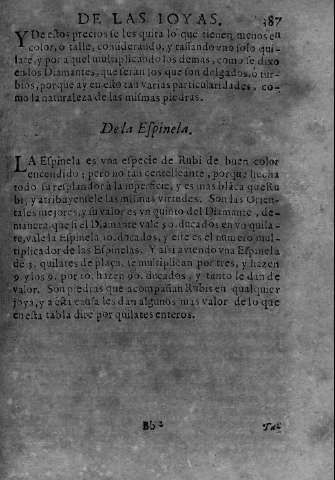 DE LAS IOYAS. 387
Y De estos precios se les quita lo que tienen menos en
color, o talle, considerando, y tassando vno solo qui-
late, y por aquel multiplicando los demas, como se dixo
en los Diamantes, que seran los que son delgados, o tur-
bios, porque ay en esto tan varias particularidades, co-
mo la naturaleza de las mismas piedras.
De la Espinela.
LA Espinela es vna especie de Rubi de buen color
encendido; pero no tan centelleante, porque hecha
todo su resplandor à la superficie, y es mas blāca que Ru
bi, y atribuyentele las mismas virtudes. Son las Orien-
tales mejores, y su valor es vn quinto del Diamante, de-
manera que si el Diamante vale 50. ducados en vn quila-
te, vale la Espinela 10. ducados, y este es el numero mul-
tiplicador de las Espinelas. Y assi aviendo vna Espinela
de 3. quilates de plaça, se multiplican por tres, y hazen
9. y los 9. por 10. hazen 90. ducados, y tanto le dan de
valor. Son piedras que acompañan Rubis en qualquier
joya, y a esta causa les dan algunos mas valor de lo que
en esta tabla dize por quilates enteros.
Bb 2 Ta-